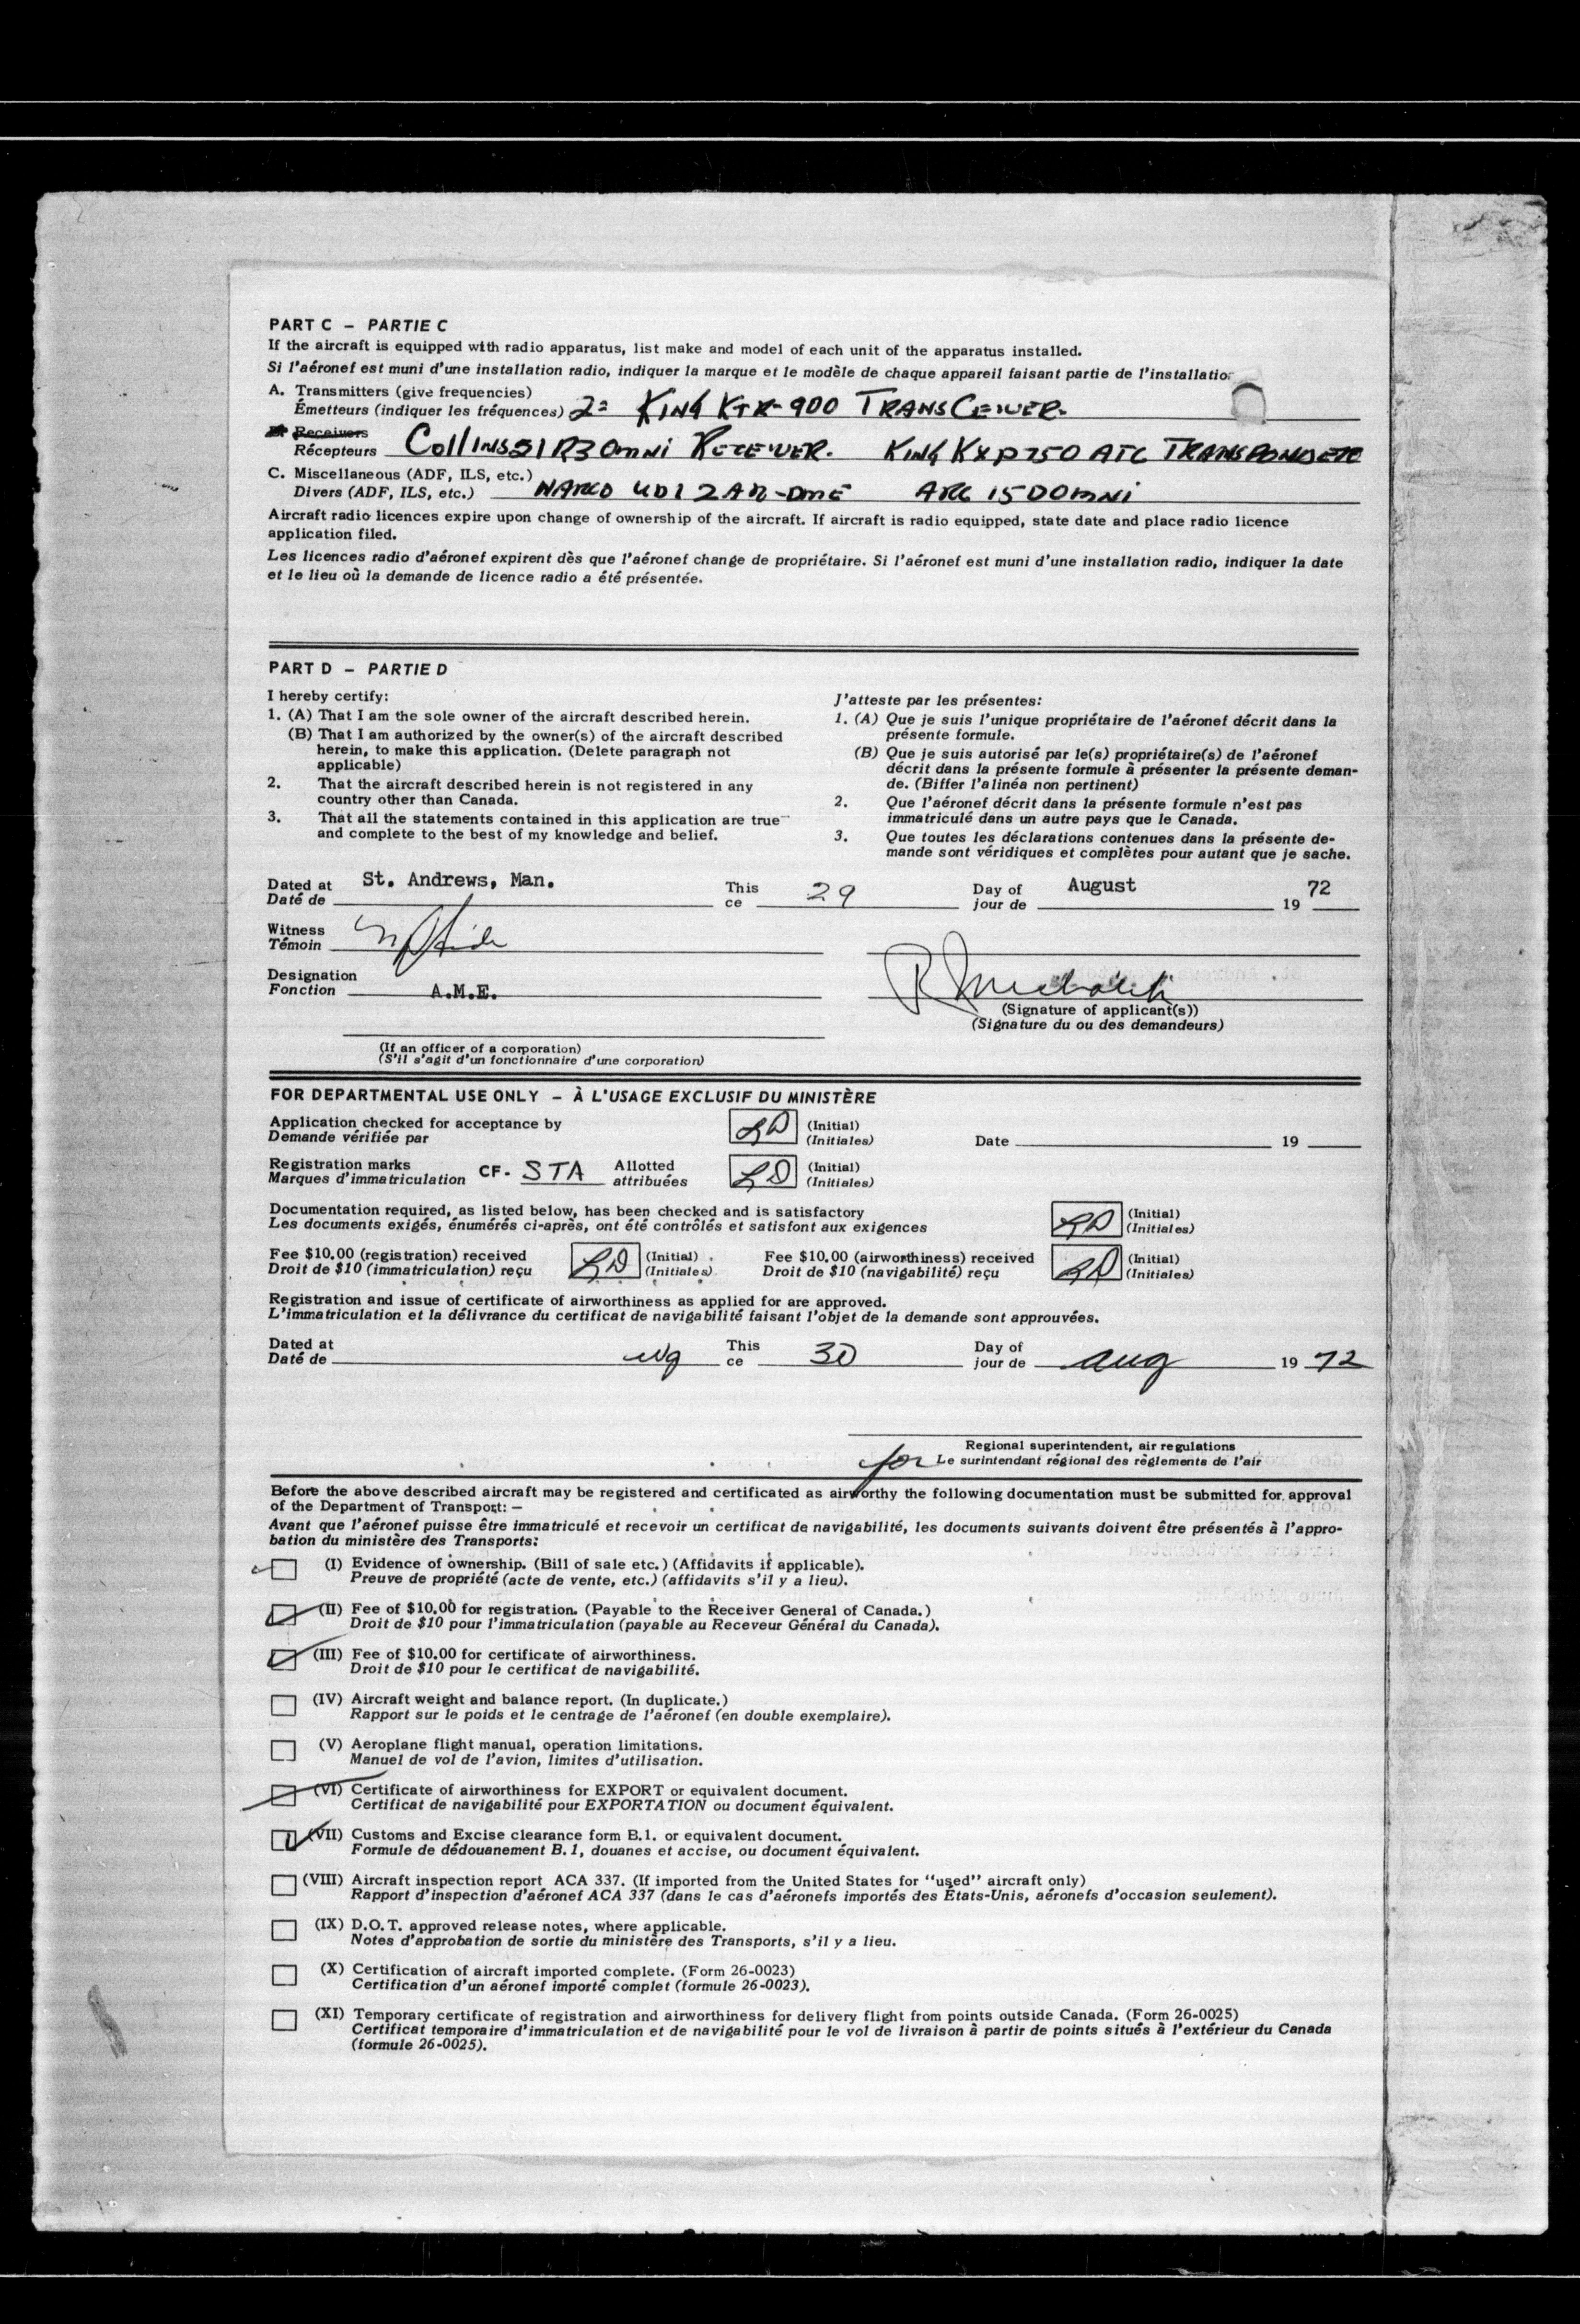 PART C – PARTIE C
If the aircraft is equipped with radio apparatus, list make and model of each unit of the apparatus installed.
Si l'aéronef est muni d'une installation radio, indiquer la marque et le modèle de chaque appareil faisant partie de l'installatio
A. Transmitters (give frequencies)
Émetteurs (indiquer les fréquences) 2= KING KTR-900 TRANSCEIVER.
Receivers
Récepteurs Collins 51R3 Omni RECEIVER. KING KXP750 ATC TRANSPONDER
C. Miscellaneous (ADF, ILS, etc.)
Divers (ADF, ILS, etc.) NARCO UDI 2AR-DME ARC 15D OMNI
Aircraft radio licences expire upon change of ownership of the aircraft. If aircraft is radio equipped, state date and place radio licence
application filed.
Les licences radio d'aéronef expirent dès que l'aéronef change de propriétaire. Si l'aéronef est muni d'une installation radio, indiquer la date
et le lieu où la demande de licence radio a été présentée.
PART D – PARTIE D
I hereby certify:
1. (A) That I am the sole owner of the aircraft described herein.
(B) That I am authorized by the owner(s) of the aircraft described
herein, to make this application. (Delete paragraph not
applicable)
2. That the aircraft described herein is not registered in any
country other than Canada.
3. That all the statements contained in this application are true
and complete to the best of my knowledge and belief.
J'atteste par les présentes:
1. (A) Que je suis l'unique propriétaire de l'aéronef décrit dans la
présente formule.
(B) Que je suis autorisé par le(s) propriétaire(s) de l'aéronef
décrit dans la présente formule à présenter la présente deman-
de. (Biffer l'alinéa non pertinent)
2. Que l'aéronef décrit dans la présente formule n'est pas
immatriculé dans un autre pays que le Canada.
3. Que toutes les déclarations contenues dans la présente de-
mande sont véridiques et complètes pour autant que je sache.
Dated at St. Andrews, Man. This 29 Day of August 72
Daté de ce jour de 19
Witness
Témoin
Designation
Fonction A.M.E.
(Signature of applicant(s))
(Signature du ou des demandeurs)
(If an officer of a corporation)
(S'il s'agit d'un fonctionnaire d'une corporation)
FOR DEPARTMENTAL USE ONLY – À L'USAGE EXCLUSIF DU MINISTÈRE
Application checked for acceptance by LD (Initial)
Demande vérifiée par (Initiales) Date 19
Registration marks CF- STA Allotted LD (Initial)
Marques d'immatriculation attribuées (Initiales)
Documentation required, as listed below, has been checked and is satisfactory LD (Initial)
Les documents exigés, énumérés ci-après, ont été contrôlés et satisfont aux exigences (Initiales)
Fee $10.00 (registration) received LD (Initial) Fee $10.00 (airworthiness) received LD (Initial)
Droit de $10 (immatriculation) reçu (Initiales) Droit de $10 (navigabilité) reçu (Initiales)
Registration and issue of certificate of airworthiness as applied for are approved.
L'immatriculation et la délivrance du certificat de navigabilité faisant l'objet de la demande sont approuvées.
Dated at This Day of
Daté de Wg ce 30 jour de Aug 19 72
Regional superintendent, air regulations
for Le surintendant régional des règlements de l'air
Before the above described aircraft may be registered and certificated as airworthy the following documentation must be submitted for approval
of the Department of Transport: –
Avant que l'aéronef puisse être immatriculé et recevoir un certificat de navigabilité, les documents suivants doivent être présentés à l'appro-
bation du ministère des Transports:
(I) Evidence of ownership. (Bill of sale etc.) (Affidavits if applicable).
Preuve de propriété (acte de vente, etc.) (affidavits s'il y a lieu).
(II) Fee of $10.00 for registration. (Payable to the Receiver General of Canada.)
Droit de $10 pour l'immatriculation (payable au Receveur Général du Canada).
(III) Fee of $10.00 for certificate of airworthiness.
Droit de $10 pour le certificat de navigabilité.
(IV) Aircraft weight and balance report. (In duplicate.)
Rapport sur le poids et le centrage de l'aéronef (en double exemplaire).
(V) Aeroplane flight manual, operation limitations.
Manuel de vol de l'avion, limites d'utilisation.
(VI) Certificate of airworthiness for EXPORT or equivalent document.
Certificat de navigabilité pour EXPORTATION ou document équivalent.
(VII) Customs and Excise clearance form B.1. or equivalent document.
Formule de dédouanement B.1, douanes et accise, ou document équivalent.
(VIII) Aircraft inspection report ACA 337. (If imported from the United States for "used" aircraft only)
Rapport d'inspection d'aéronef ACA 337 (dans le cas d'aéronefs importés des États-Unis, aéronefs d'occasion seulement).
(IX) D.O.T. approved release notes, where applicable.
Notes d'approbation de sortie du ministère des Transports, s'il y a lieu.
(X) Certification of aircraft imported complete. (Form 26-0023)
Certification d'un aéronef importé complet (formule 26-0023).
(XI) Temporary certificate of registration and airworthiness for delivery flight from points outside Canada. (Form 26-0025)
Certificat temporaire d'immatriculation et de navigabilité pour le vol de livraison à partir de points situés à l'extérieur du Canada
(formule 26-0025).